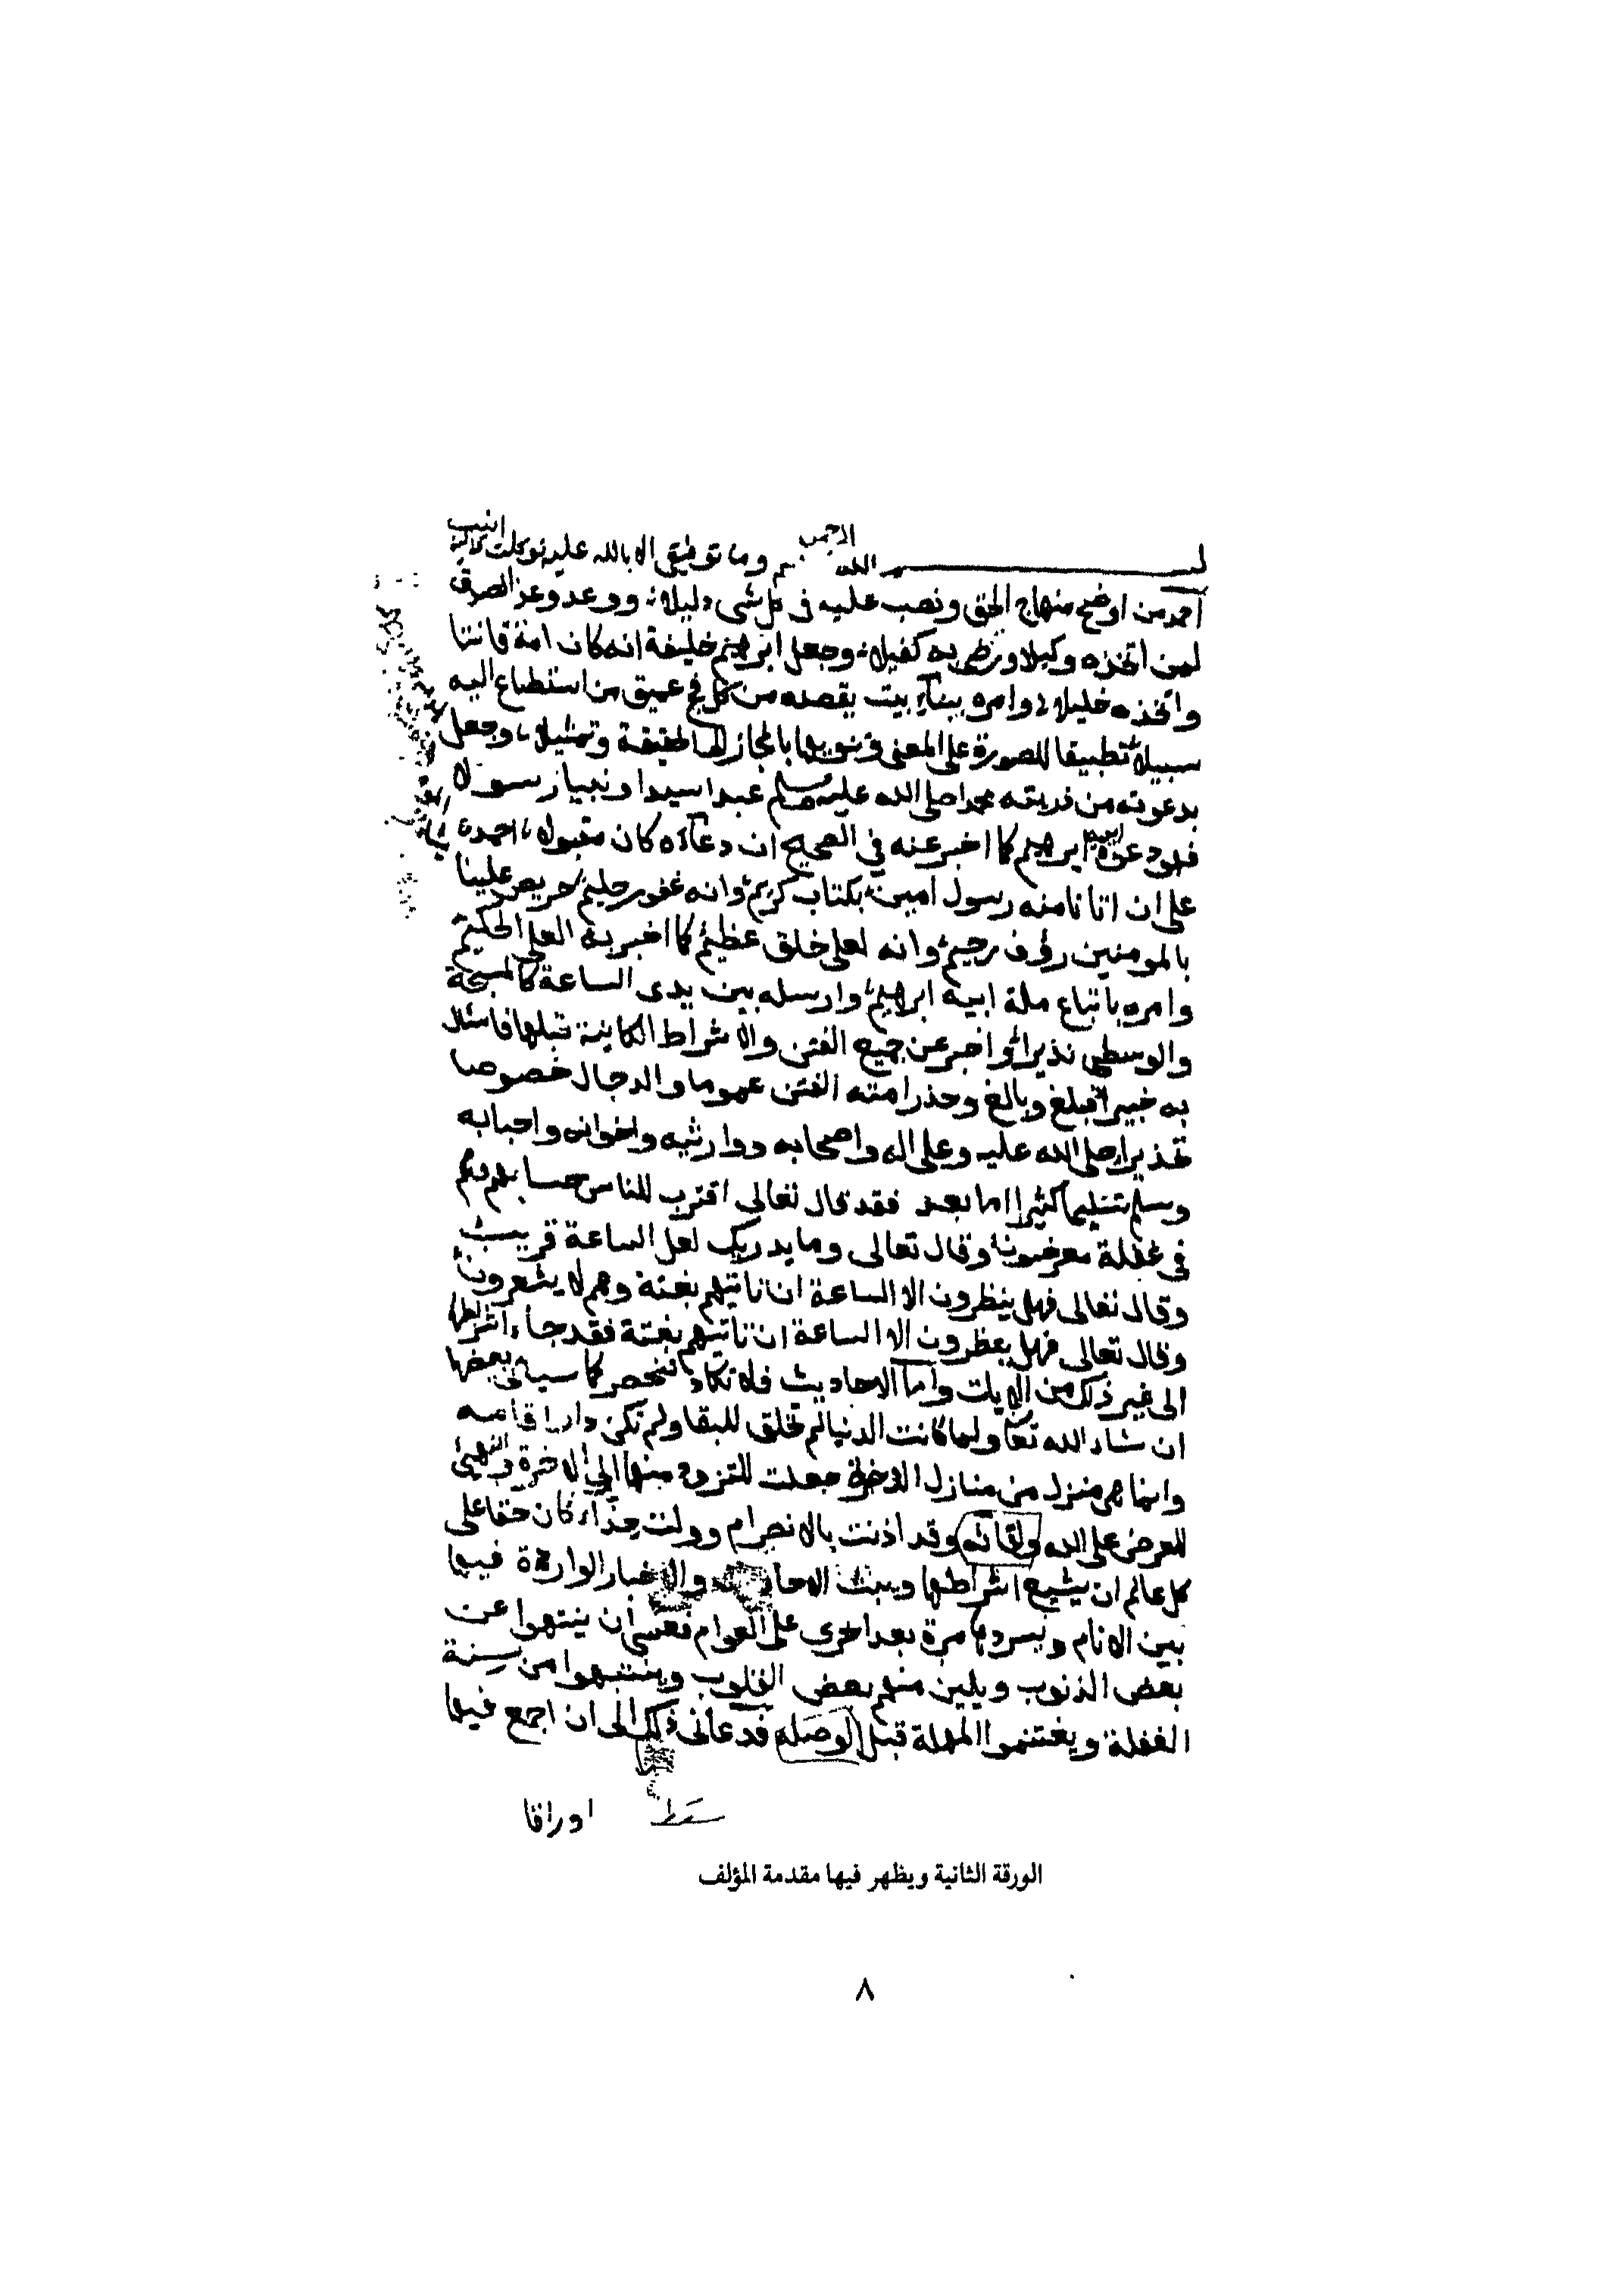 بسم الله الرحمن الرحيم وما توفيقي الا بالله عليه توكلت واليه انيب
احمد من اوضح منهاج الحق ونصب عليه في كل شي دليلا ووعد وعد الصدق
لمن اتخذه وكيلا به كفيلا وجعل ابرهيم خليفة انه كان امة قانتا
واتخذه خليلا وامره ببناء بيت يقصده من كل فج عميق من استطاع اليه
سبيلا تطبيقا للصورة على المعنى بالمجاز الحقيقة وتمثيلا وجعل
بدعوته من ذريته محمدا صلى الله عليه وسلم عبدا سيدا ونبيا رسولا
ابرهيم كما اخبر عنه في الصحيح ان دعاءه كان مقبولا احمده
على ان اتانا منه رسول امين بكتاب كريم وانه غفور حليم حريص علينا
بالمومنين رؤف رحيم وانه لعلى خلق عظيم كما اخبر به العلى الحكيم
وامره باتباع ملة ابيه ابرهيم وارسله بين يدى الساعة كالمسبحة
والوسطى نذيرا واخبر عن جميع الفتن والاشراط الكاينة قبلها فاسئل
به خبيرا فبلغ وبالغ وحذر امته الفتن عموما والدجال خصوصا
تحذيرا صلى الله عليه وعلى اله واصحابه ووارثيه واخوانه واحبابه
وسلم تسليما كثيرا اما بعد فقد قال تعالى اقترب للناس حسابهم وهم
في غفلة معرضون وقال تعالى وما يدريك لعل الساعة قريب
وقال تعالى فهل ينظرون الا الساعة ان تاتيهم بغتة وهم لا يشعرون
وقال تعالى فهل ينظرون الا الساعة ان تاتيهم بغتة فقد جاء اشراطها
الى غير ذلك من الايات واما الاحاديث فلا تكاد تنحصر كما سياتي بعضها
ان شاء الله تعا ولما كانت الدنيا لم تخلق للبقا ولم تكن دار اقامه
وانما هي منزل من منازل الاخرة جعلت للتزود منها الى الاخرة والتهيئ
للعرض على الله ولقائه وقد اذنت بالانصرام وولت حذاء كان حقا على
كل عالم ان يشيع اشراطها ويبث الاحاديث والاخبار الواردة فيها
بين الانام ويسردها مرة بعد اخرى على العوام فعسى ان ينتهوا عن
بعض الذنوب ويلين منهم بعض القلوب وينتبهوا من سنة
الغفلة ويغتنموا المهلة قبل الوصله فدعاني ذلك الى ان اجمع فيها
سقط اوراقا
الورقة الثانية ويظهر فيها مقدمة المؤلف
٨